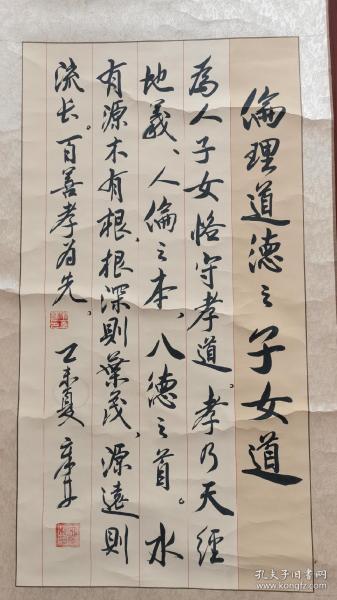 倫理道德之子女道
為人子女恪守孝道。孝乃天經
地義、人倫之本、八德之首。水
有源木有根，根深則葉茂，源遠則
流长。百善孝為先。
丁未夏
孔夫子旧书网
www.kongfz.com